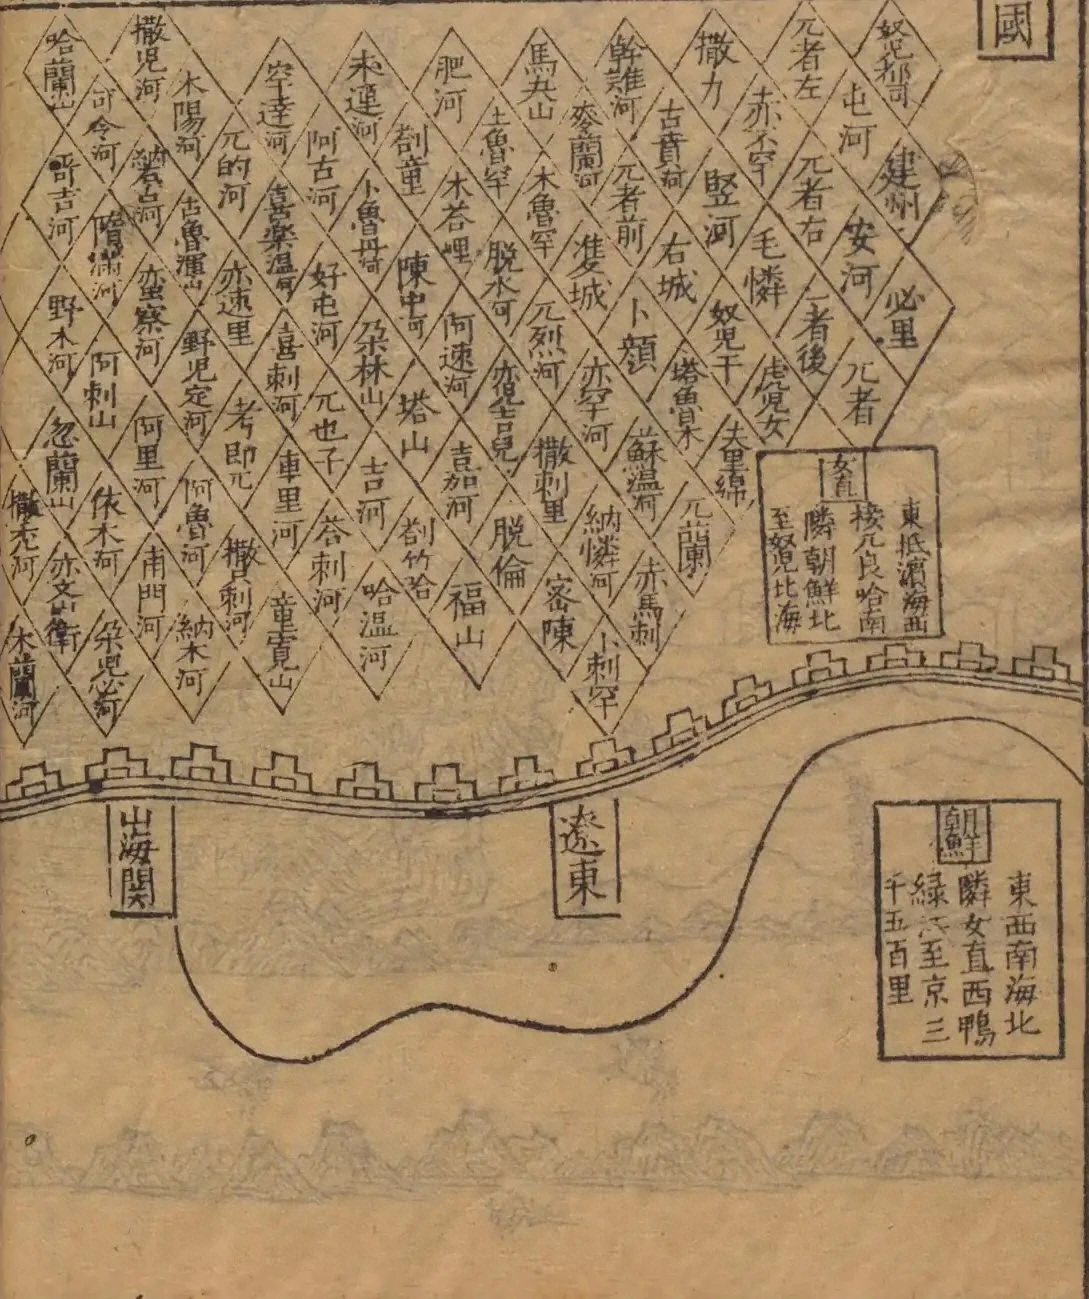 國
奴兒都司
建州
必里
屯河
安河
兀者
兀者左
兀者右
者後
赤不罕
毛憐
虎兒女
撒力
竪河
奴兒干
古賁河
右城
塔魯木
幹難河
兀者前
卜顔
蘇溫河
兀蘭
赤馬剌
麥蘭河
䨇城
亦罕河
納憐河
卜剌罕
木魯罕
兀烈河
撒剌里
密陳
土魯罕
脱水河
脱倫
肥河
木荅哩
阿速河
嘉河
福山
劄童
陳中河
塔山
劄竹荅
卜魯丹河
朶林山
吉河
哈温河
阿古河
好屯河
兀也子
荅剌河
喜樂溫河
喜剌河
車里河
童寛山
兀的河
亦速里
考郎兀
撒剌河
木陽河
古魯渾山
野兒定河
阿魯河
納木河
撒兒河
亦蛮察河
阿里河
甫門河
可令河
阿剌山
依木河
朶兒必河
哈蘭山
哥吉河
野木河
忽蘭山
撒禿河
木蘭河
女直
東抵濵海西
接兀良哈南
隣朝鮮北
至奴兒北海
山海関
遼東
朝鮮
東西南海北
隣女直西鴨
緑至京三
千五百里